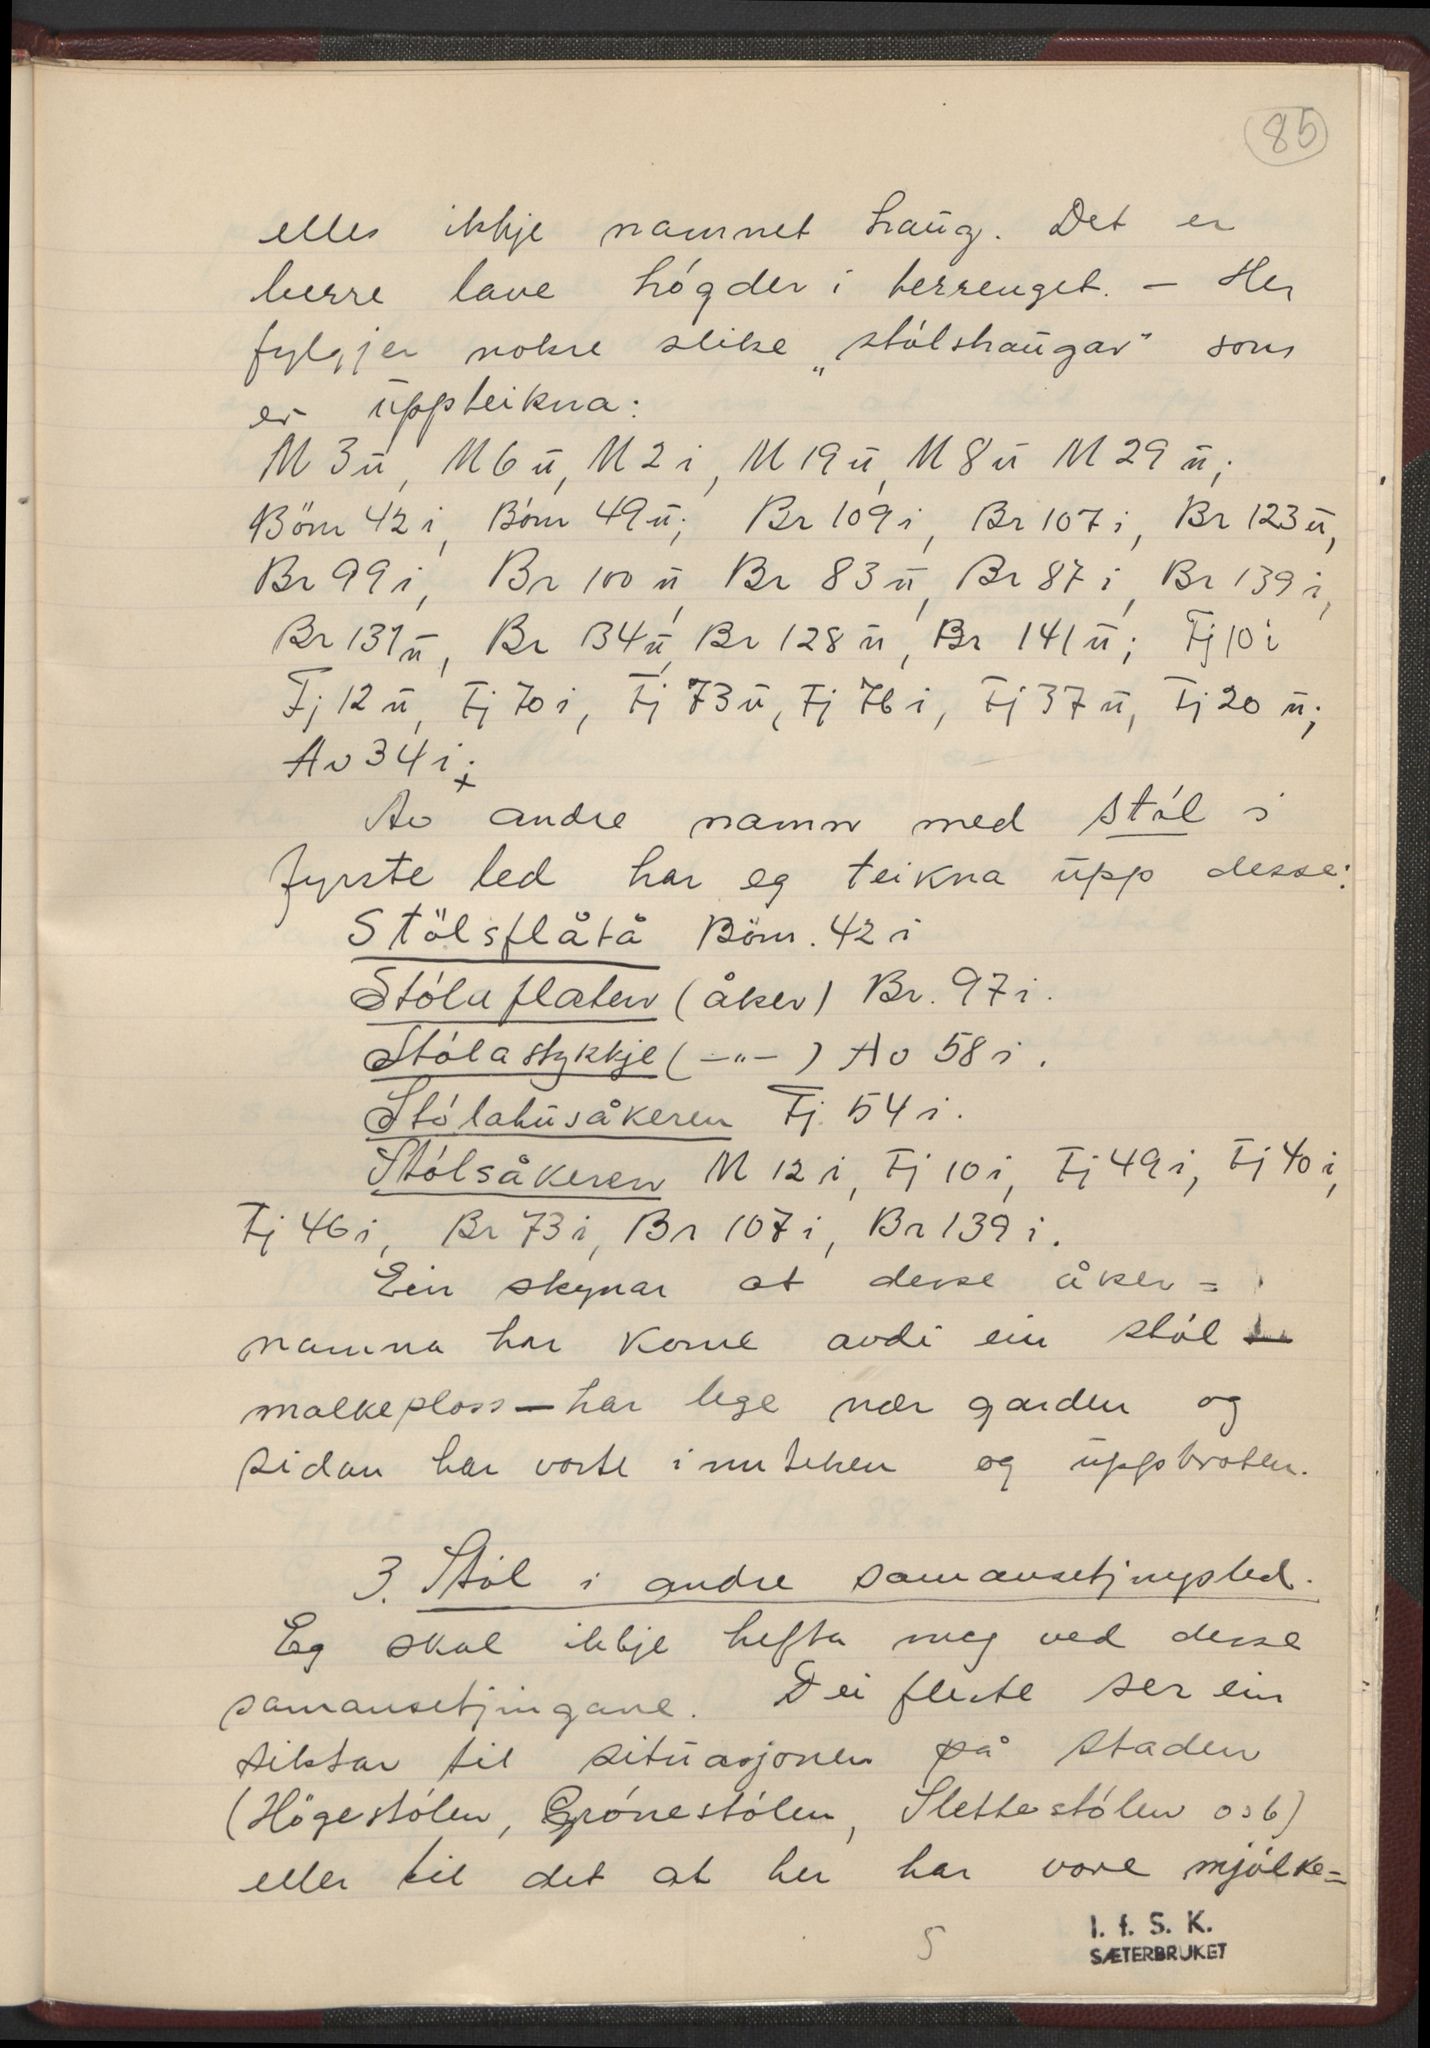 85
elles ikkje namnet haug. Det er
berre lave hógder i terrenget. – Her
fylgjer nokre slike „stólshaugar" som
er uppteikna:
M 3u, M 6u, M 2i, M 19u, M 8u M 29u;
Böm 42i, Bóm 49u; Br 109i, Br 107i, Br 123u,
Br 99i, Br 100u, Br 83u, Br 87i, Br 139i,
Br 131u, Br 134u, Br 128u, Br 141u; Fj 10i
Fj 12u, Fj 70i, Fj 73u, Fj 76i, Fj 37u, Fj 20u;
Av 34i; x
Av andre namn med stól i
fyrste led har eg teikna upp desse:
Stölsflåtå Böm. 42i
Stólaflaten (åker) Br. 97i.
Stólastykkje (–"–) Av 58i.
Stólahusåkeren Fj. 54i.
Stólsåkeren M 12i, Fj 10i, Fj 49i, Fj 40i,
Fj 46i, Br 73i, Br 107i, Br 139i.
Ein skynar at desse åker=
namna har kome avdi ein stól –
mælkeplass – har lege nær garden og
sidan har vorte innteken og uppbroten.
3. Stól i andre samansetjingsled.
Eg skal ikkje hefta meg ved desse
samansetjingane. Dei fleste ser ein
siktar til situasjonen på staden
(Högestólen, Grónestólen, Slettestólen osb)
eller til det at her har vore mjólke=
5
I. f. S. K.
SÆTERBRUKET